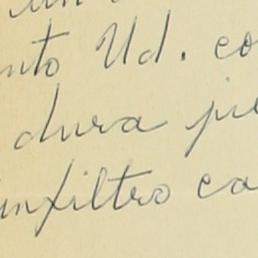 un
nto Ud. co
dura pie
infiltro ca